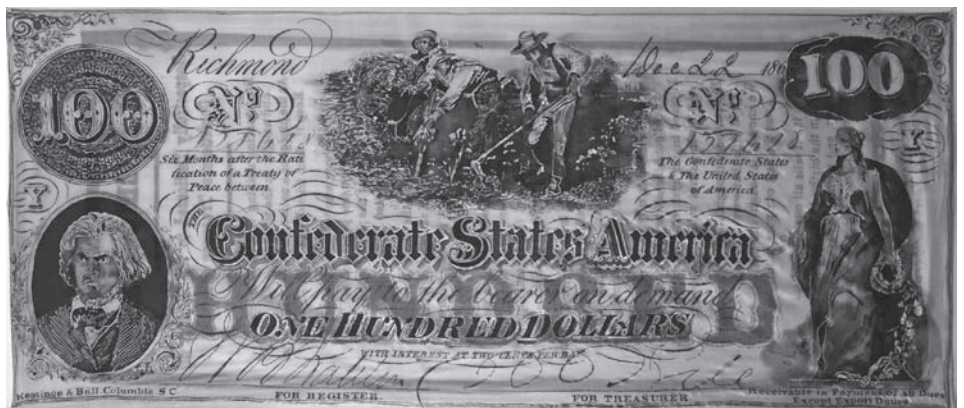 Richmond Dec 22 186
100 100
No No
Six Months after the Rati
fication of a Treaty of
Peace between
The Confederate States
& The United States
of America
Y Y
THE
Confederate States America
Will pay to the bearer on demand
ONE HUNDRED DOLLARS
WITH INTEREST AT TWO CENTS PER DAY
Keatinge & Ball, Columbia, S C
FOR REGISTER.
FOR TREASURER
Receivable in Payment of all Dues
Except Export Duties